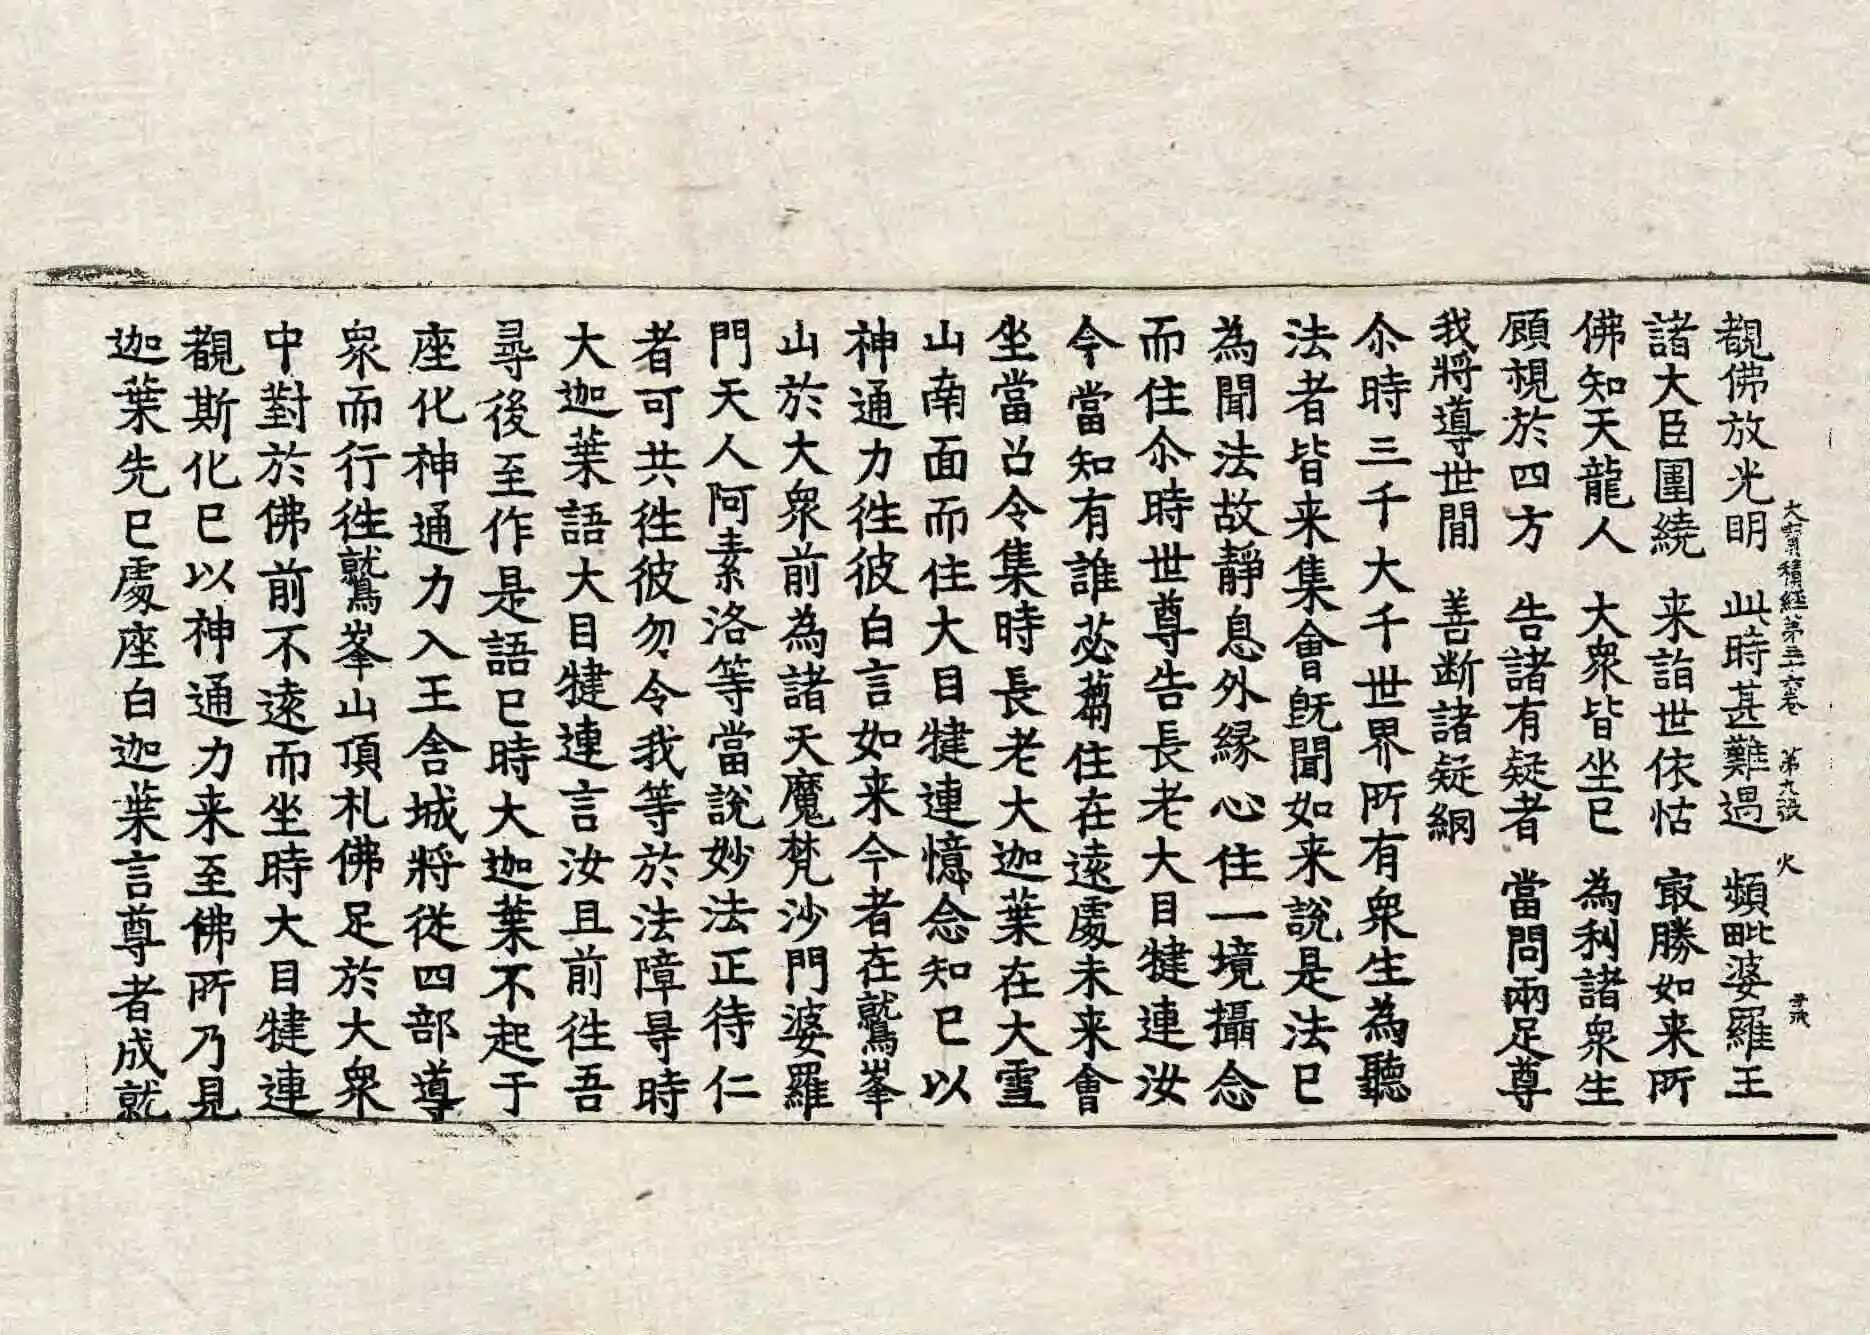 覩佛放光明　此時甚難遇　頻毗婆羅王
大寶積經第三六卷　第九張　火
諸大臣圍繞　来詣世依怙　㝡勝如来所
佛知天龍人　大衆皆坐已　為利諸衆生
顧視於四方　告諸有疑者　當問兩足尊
我將導世間　善断諸疑網
尒時三千大千世界所有衆生為聽
法者皆来集會既聞如来說是法已
為聞法故靜息外緣心住一境攝念
而住尒時世尊告長老大目揵連汝
今當知有誰苾蒭住在遠處未来會
坐當召令集時長老大迦葉在大雪
山南面而住大目揵連憶念知已以
神通力徃彼白言如来今者在鷲峯
山於大衆前為諸天魔梵沙門婆羅
門天人阿素洛等當說妙法正待仁
者可共徃彼勿令我等於法障㝵時
大迦葉語大目揵連言汝且前徃吾
尋後至作是語已時大迦葉不起于
座化神通力入王舍城將從四部導
衆而行徃鷲峯山頂札佛足於大衆
中對於佛前不遠而坐時大目揵連
覩斯化已以神通力来至佛所乃見
迦葉先已處座白迦葉言尊者成就